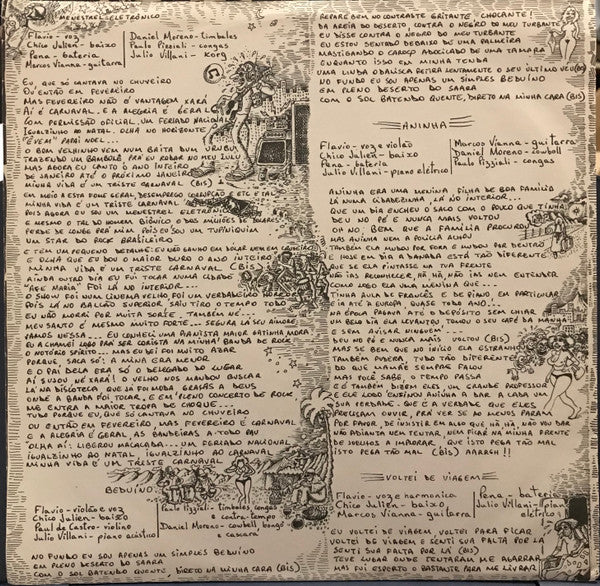 MENESTREL ELETRÔNICO
Flavio - voz
Chico Julien - baixo
Pena - bateria
Marcos Vianna - guitarra
Daniel Moreno - timbales
Paulo Pizziali - congas
Julio Villani - Korg
EU QUE SÓ CANTAVA NO CHUVEIRO
OU ENTÃO EM FEVEREIRO
MAS FEVEREIRO NÃO É VANTAGEM XARÁ
AÍ É CARNAVAL E A ALEGRIA É GERAL
COM PERMISSÃO OFICIAL, UM FERIADO NACIONAL
IGUALZINHO AO NATAL. OLHA NO HORIZONTE
"EVEM" PAPAI NOEL...
O BOM VELHINHO VEM NUM BAITA BUM URUBU
TRAZENDO UM BAMBOLÊ PRA EU RODAR NO MEU LULU
MAS AGORA EU CANTO O ANO INTEIRO
DE JANEIRO ATÉ O PRÓXIMO JANEIRO
MINHA VIDA É UM TRISTE CARNAVAL (BIS)
EM MEIO A ESTA FOME GERAL, DESEMPREGO CORRUPÇÃO E ETC E TAL
MINHA VIDA É UM TRISTE CARNAVAL
POIS AGORA EU SOU UM MENESTREL ELETRÔNICO
E MESMO O TAL DO HOMEM BIÔNICO DE 6 MILHÕES DE DOLARES
PERDE DE LONGE PRA MIM POIS EU SOU UM TUPINIQUIM
UM STAR DO ROCK BRASILEIRO
E TEM UM PEQUENO DETALHE: EU NÃO GANHO EM DÓLAR NEM EM CRUZEIRO
E OLHA QUE EU DOU O MAIOR DURO O ANO INTEIRO
MINHA VIDA É UM TRISTE CARNAVAL (BIS)
AINDA OUTRO DIA EU FUI TOCAR NUMA CIDADE
"AVE MARIA" FOI LÁ NO INTERIOR...
O SHOW FOI NUM CINEMA VELHO, FOI UM VERDADEIRO HORROR
POIS LÁ NO BALCÃO SUPERIOR SAIU TIRO O TEMPO TODO
EU NÃO MORRI POR MUITA SORTE, TAMBÉM NÉ...
MEU SANTO É MESMO MUITO FORTE... SEGURA LÁ SEU AIMORÉ,
VAMOS NESSA... EU CONHECI UMA PIANISTA MAIOR GATINHA MORA
EU A CHAMEI LOGO PRA SER CORISTA NA MINHA BANDA DE ROCK
O NOTÓRIO SPÍRITO... MAS EU DEI FOI MUITO AZAR
PORQUE SACA SÓ: A MINA ERA MENOR
E O PAI DELA ERA SÓ O DELEGADO DO LUGAR
AÍ SUJOU NÉ XARÁ! O VELHO NOS MANDOU BUSCAR
LÁ NA DISCOTECA QUE JÁ FOI MODA GRAÇAS A DEUS
ONDE A BANDA FOI TOCAR, E EM PLENO CONCERTO DE ROCK,
ME ENTRA A MAIOR TROPA DE CHOQUE...
TUDO PORQUE EU, QUE SÓ CANTAVA NO CHUVEIRO
OU ENTÃO EM FEVEREIRO, MAS FEVEREIRO É CARNAVAL
E A ALEGRIA É GERAL, AS BANDEIRAS A TODO PAU
OLHA AÍ: LIBEROU MACACADA... UM FERIADO NACIONAL
IGUALZINHO AO NATAL IGUALZINHO AO CARNAVAL
MINHA VIDA É UM TRISTE CARNAVAL
BEDUINO
Flavio - violão e voz
Chico Julien - baixo
Paul de Castro - violino
Julio Villani - piano acústico
Paulo Pizziali - timbales, congas e contra-tempo
Daniel Moreno - cowbell, bongô e cascará
NO FUNDO EU SOU APENAS UM SIMPLES BEDUÍNO
EM PLENO DESERTO DO SAARA
COM O SOL BATENDO QUENTE, DIRETO NA MINHA CARA (BIS)
REPARE BEM NO CONTRASTE GRITANTE, CHOCANTE!
DA AREIA DO DESERTO, CONTRA O NEGRO DO MEU TURBANTE
EU DISSE CONTRA O NEGRO DO MEU TURBANTE
EU ESTOU SENTADO DEBAIXO DE UMA PALMEIRA
MASTIGANDO O CAROÇO ADOCICADO DE UMA TÂMARA
ENQUANTO ISSO EM MINHA TENDA
UMA LINDA ODALISCA RETIRA LENTAMENTE O SEU ÚLTIMO VÉU (BIS)
NO FUNDO EU SOU APENAS UM SIMPLES BEDUÍNO
EM PLENO DESERTO DO SAARA
COM O SOL BATENDO QUENTE, DIRETO NA MINHA CARA (BIS)
ANINHA
Flavio - voz e violão
Chico Julien - baixo
Pena - bateria
Julio Villani - piano elétrico
Marcos Vianna - guitarra
Daniel Moreno - cowbell
Paulo Pizziali - congas
ANINHA ERA UMA MENINA, FILHA DE BOA FAMÍLIA
LÁ NUMA CIDADEZINHA, LÁ NO INTERIOR...
QUE UM DIA ENCHEU O SACO COM O POUCO QUE TINHA
DEU NO PÉ E NUNCA MAIS VOLTOU
OH NO, BEM QUE A FAMÍLIA PROCUROU
MAS ANINHA NEM A POLÍCIA ACHOU
TAMBÉM ELA MUDOU POR FORA, E MUDOU POR DENTRO
E HOJE EM DIA A DANADA ESTÁ TÃO DIFERENTE
QUE SE ELA PINTASSE NA TUA FRENTE
NÃO IAS RECONHECER, HÁ HÁ, NÃO IAS NEM ENTENDER
COMO LOGO ELA UMA MENINA QUE...
TINHA AULA DE FRANCÊS E DE PIANO, EM PARTICULAR
E IA ATÉ À EUROPA QUASE TODO ANO...
NA ÉPOCA PAGAVA ATÉ O DEPÓSITO SEM CHIAR
UM BELO DIA ELA LEVANTOU, TOMOU O SEU CAFÉ DA MANHÃ
E SEM AVISAR NINGUÉM
DEU NO PÉ E NUNCA MAIS VOLTOU (BIS)
MAS SE BEM QUE NO INÍCIO ELA ESTRANHOU
TAMBÉM PUDERA, TUDO TÃO DIFERENTE
DO QUE MAMÃE SEMPRE FALOU
MAS VOCÊ SABE, O TEMPO PASSA
E É TAMBÉM, TAMBÉM ELES, UM GRANDE PROFESSOR
E ELE LOGO ENSINOU ANINHA A DAR A CADA UM
SUA VERDADE - QUE É A VERDADE QUE ELES
PRECISAM OUVIR, PRÁ VER SE AO MENOS PARAM
POR FAVOR, DE INSISTIR EM ALGO QUE, HÁ HÁ, NÃO VOU DAR
NÃO ADIANTA NEM TENTAR, NEM FICAR NA MINHA FRENTE
DE JOELHOS A IMPLORAR, QUE ISTO PEGA TÃO MAL
ISTO PEGA TÃO MAL (BIS) AAARGH!!
VOLTEI DE VIAGEM
Flavio - voz e harmonica
Chico Julien - baixo
Marcos Vianna - guitarra
Pena - bateria
Julio Villani - piano elétrico
EU VOLTEI DE VIAGEM, VOLTEI PARA FICAR
VOLTEI DE VIAGEM E SENTI SUA FALTA POR LÁ
SENTI SUA FALTA POR LÁ (BIS)
TEVE LUGAR ONDE TENTARAM ME AGARRAR
MAS FUI ESPERTO O BASTANTE PARA ME LIVRAR